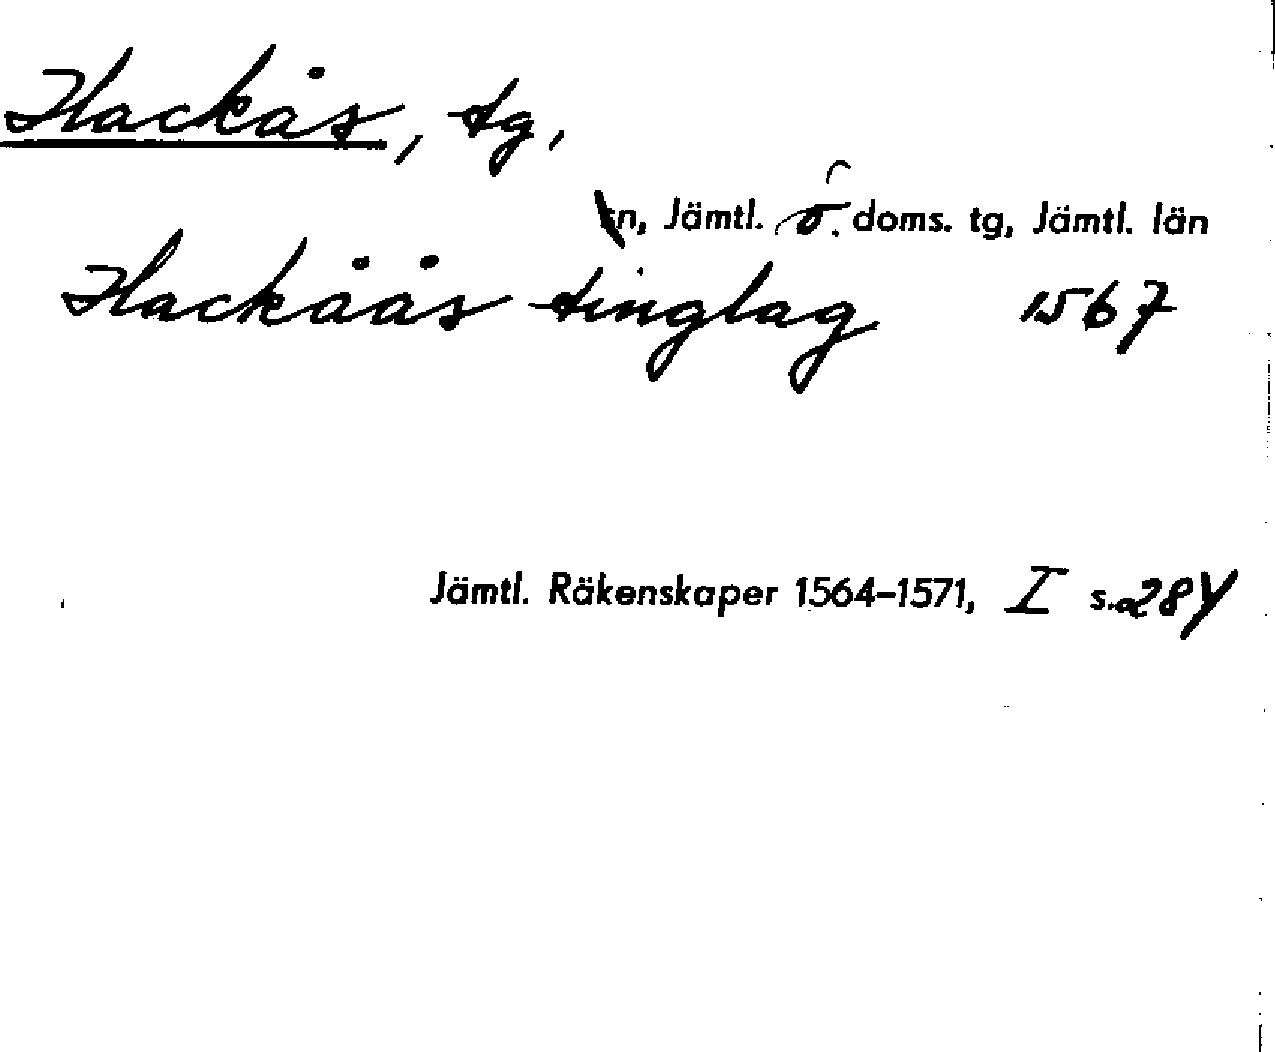 Hackås, tg,
sn, Jämtl. ö. doms. tg, Jämtl. län
Hackåås tinglag 1567
Jämtl. Räkenskaper 1564–1571, I s. 284